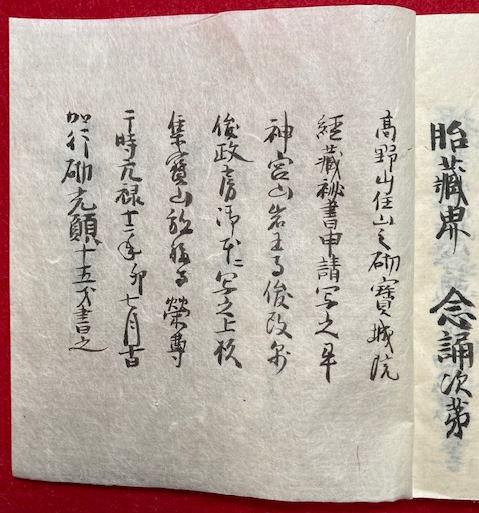 胎蔵界 念誦次第
高野山住山之砌寶城院
経蔵秘書申請写之畢
神宮山岩王寺俊政
俊政房御本ニ写之上校
集寶山 榮尊
于時元禄十二年卯七月吉
加行砌 十五才書之